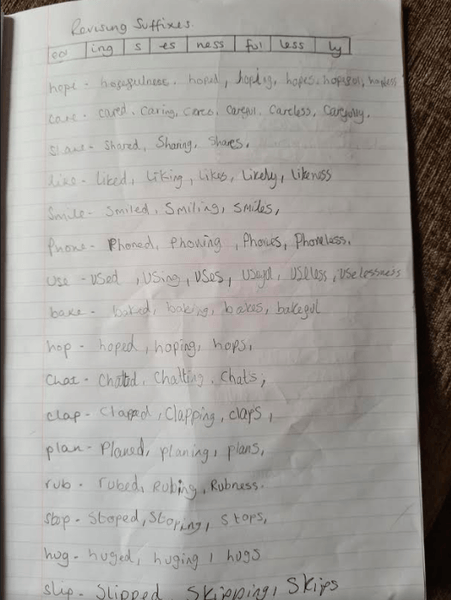 Revising Suffixes.
ed ing s es ness ful less ly
hope - hopefulness. hoped, hoping, hopes, hopeful, hopeless
care - cared. Caring, Cares. Careful. Careless, Carefully.
Share - Shared, Sharing, Shares.
like - Liked, Liking, Likes, Likely, Likeness
Smile - Smiled, Smiling, Smiles,
Phone - Phoned, Phoning, Phones, Phoneless.
use - used, Using, Uses, Useful, Useless, uselessness
bake - baked, baking, bakes, bakeful
hop - hoped, hoping, hops,
Chat - Chatted, Chatting, Chats,
clap - Clapped, Clapping, claps,
plan - Planed, planing, plans,
rub - rubed, Rubing, Rubness.
stop - Stoped, Stoping, Stops,
hug - huged, huging, hugs
Slipped, Skipping, Skips